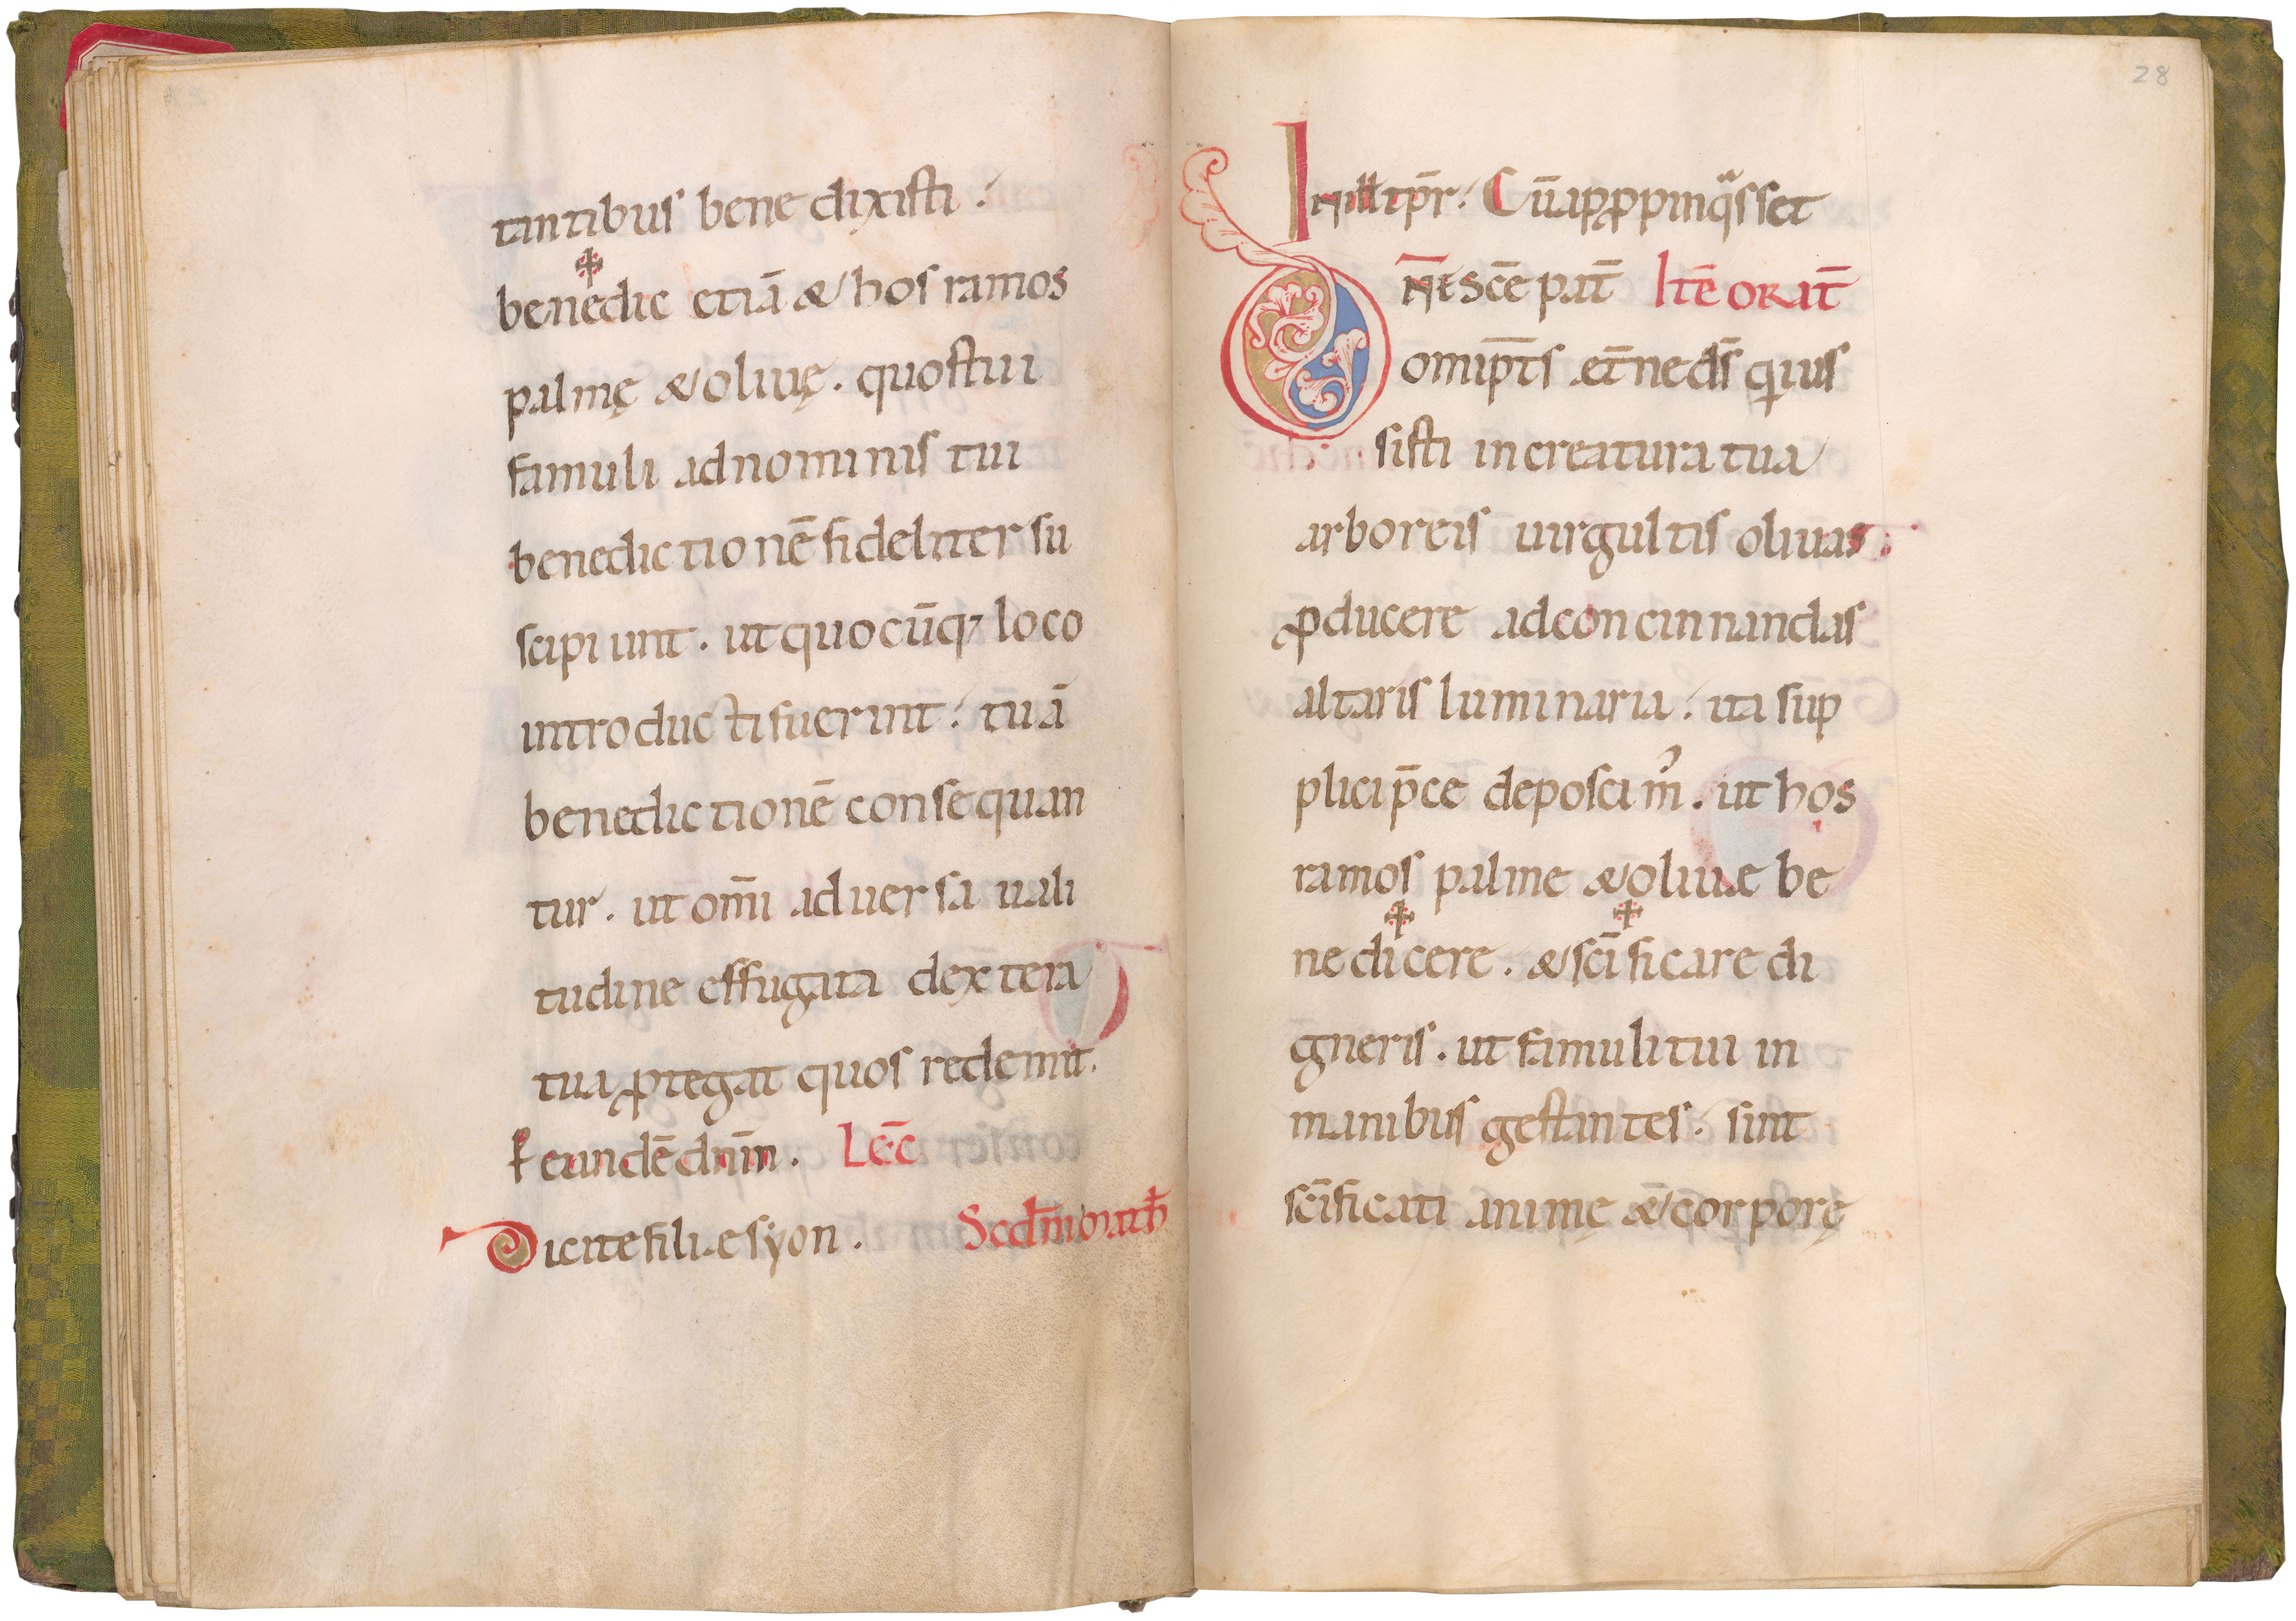 tantibus bene dixisti.
benedic etiā & hos ramos
palmę & oliuę. quos tui
famuli ad nominis tui
benedictionē fideliter su
scipiunt. ut quocūq; loco
introducti fuerint. tuā
benedictionē consequan
tur. ut om̄i aduersa uali
tudine effugata dextera
tua ꝓtegat quos redemit.
P eundē dn̄m. Lēc
Dicite filiae syon. Scd̄m math̄
28
In ill tp̄r. Cū apꝓpinq̄sset
N̄E Sc̄e pat̄ Itē ORAT̄
Omip̄ts et̄ne ds̄ qui us
sisti in creatura tua
arboreis uirgultis oliuas
ꝓducere ad concinnandas
altaris luminaria. ita sup
plici p̄ce deposcim̉. ut hos
ramos palme & oliuae be
nedicere. & sc̄ificare di
gneris. ut famuli tui in
manibus gestantes. sint
sc̄ificati animę & corporę